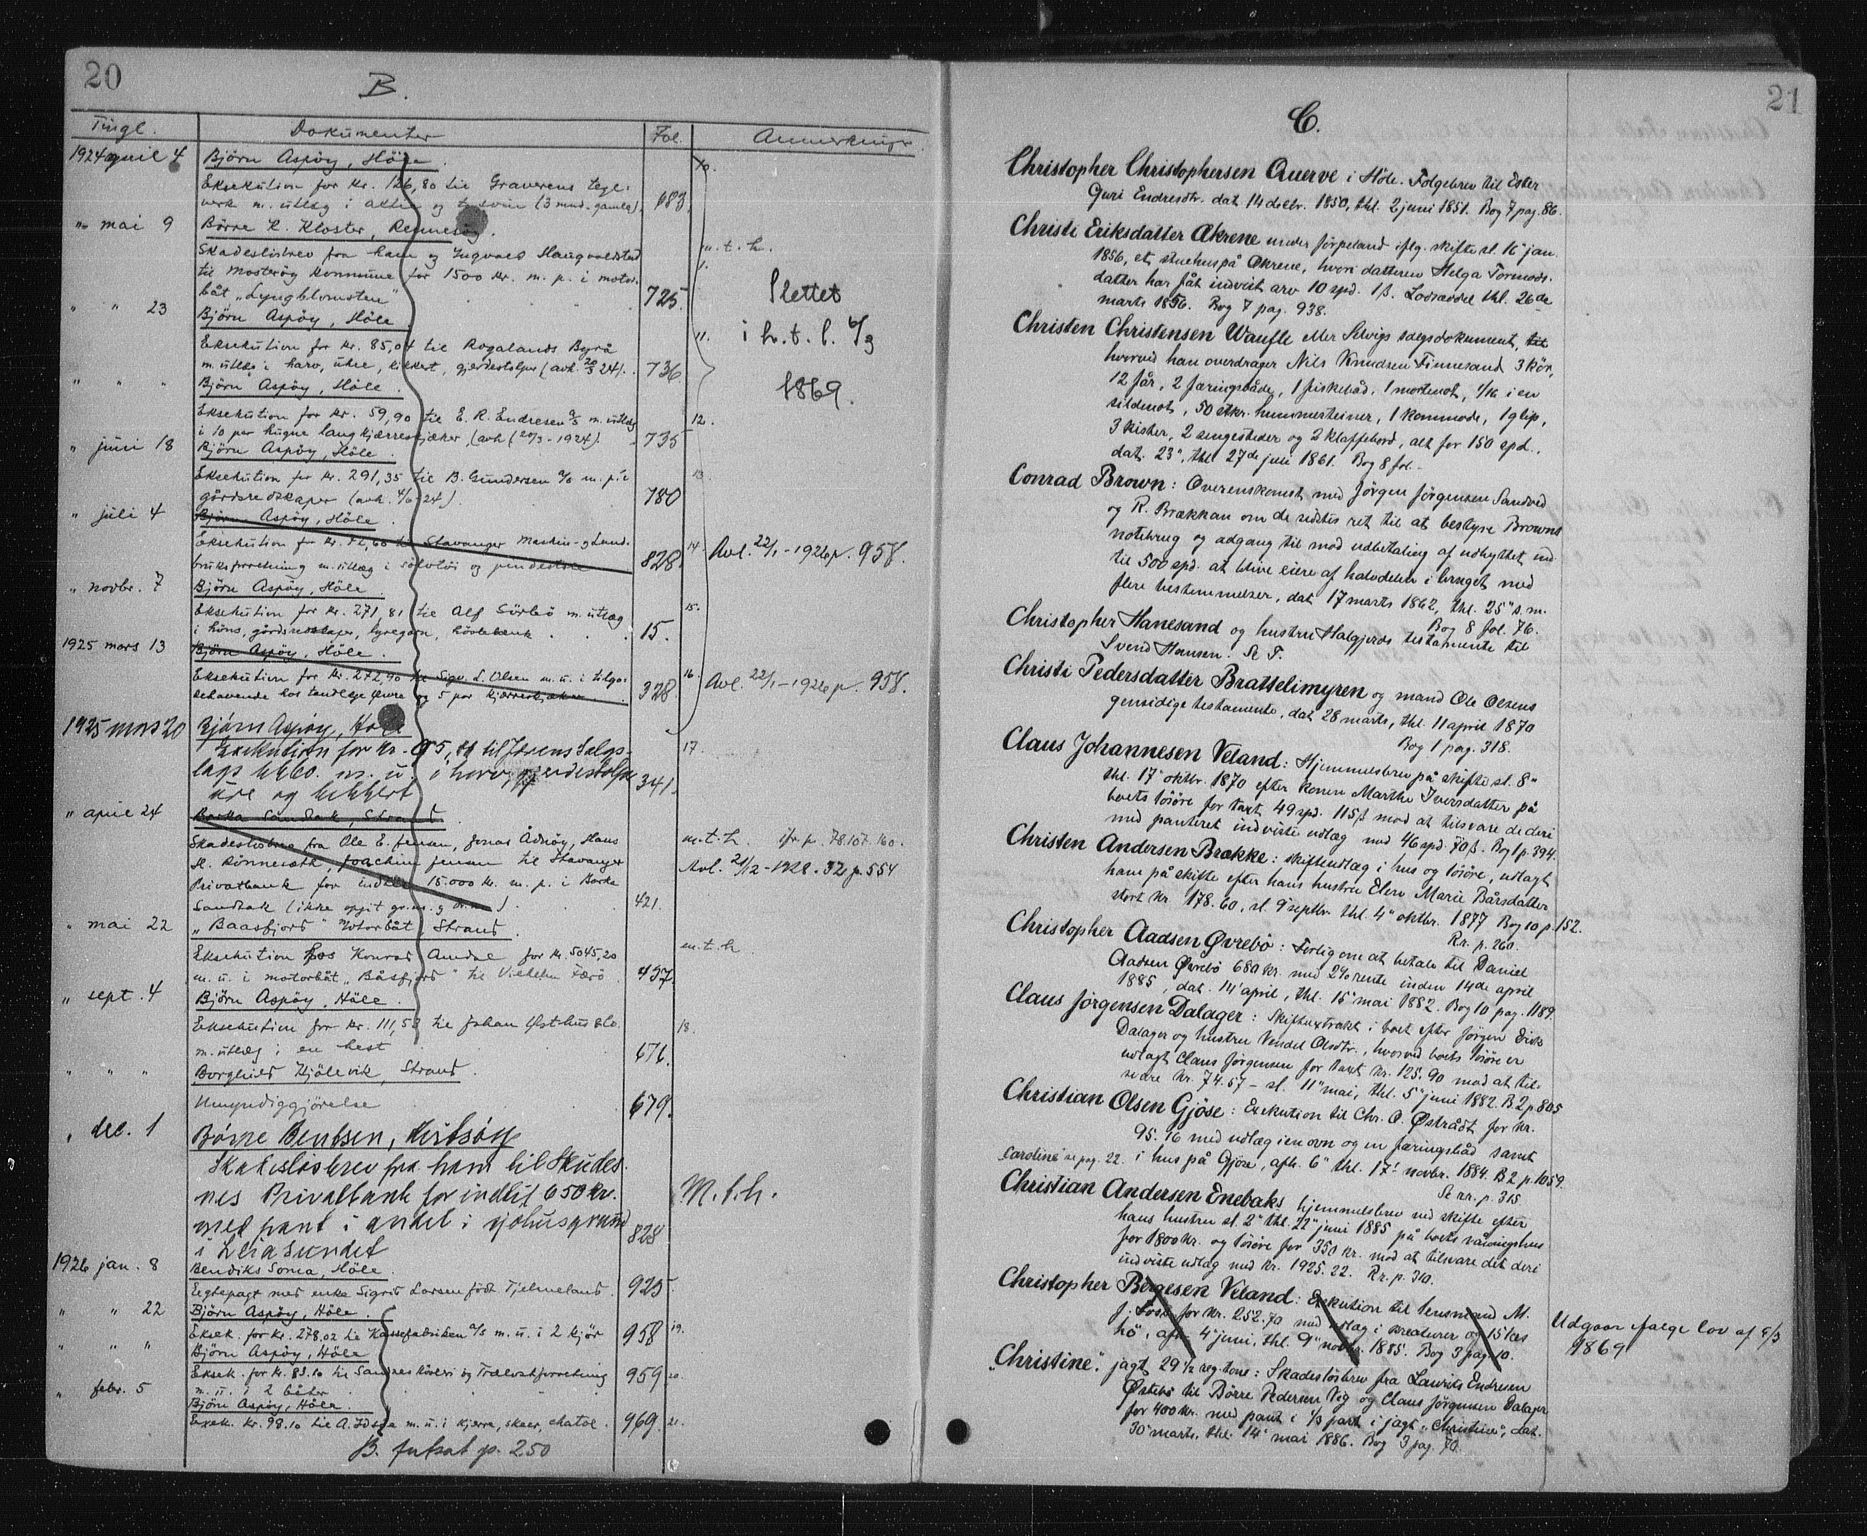 20
B.
Tingl. Dokumenter Fol. Anmerkninger
1924 april 4 Björn Aspöy, Höle. 10.
Eksekution for kr. 126,80 til Graverens tegl-
verk m. utlæg i aktier og svin (3 mnd. gamle). 683.
" mai 9 Börre K. Kloster, Rennesöy.
Skadeslösbrev fra ham og Ingvald Haugvaldstad m.t.h.
til Mosteröy kommune for 1500 kr. m. p. i motor-
båt "Lyngblomsten" 725.
" " 23 Björn Aspöy, Höle
Eksekution for kr. 85,04 til Rogalands Byrå 11.
m. utlæg i harv, uhr, kikkert, gjerdestolper (avh. 20/3 24). 736
" " " Björn Aspöy, Höle.
Eksekution for kr. 59,90 til E. R. Endresen m. utlæg 12.
i 10 par hugne langkjærrestjæker (avh. 20/3 - 1924). 735
" juni 18 Björn Aspöy, Höle.
Eksekution for kr. 291,35 til B. Gundersen m. p. i 13.
gårdsredskaper (avh. 4/6 24). 780
" juli 4 Björn Aspöy, Höle.
Eksekution for kr. 72,60 til Stavanger Maskin- og Land- 14. Avl. 22/1 - 1926 p. 958.
bruksforretning m. utlæg i og 828.
" novbr. 7 Björn Aspöy, Höle.
Eksekution for kr. 271,81 til Alf Sörbö m. utlæg 15.
i höns, gårdsredskaper, hövlebenk 15.
1925 mars 13 Björn Aspöy, Höle.
Eksekution for kr. 272,90 til Sigv. L. Olsen m. u. i tilgo- 16. Avl. 22/1 - 1926 p. 958.
dehavende hos tandlæge Øvre og 5 par kjærrestjæker 328
Slettet
i h. t. l. 6/3
1869.
1925 mars 20 Björn Aspöy, Höle
Exekution for kr. til Jærens Salgs- 17.
lags m. u. i harv, gjerdestolpe
ure og kikkert 341.
" april 24 Barka Sandtak, Strand.
Skadeslösbrev fra Ole E. Jensen, Jonas Ådnöy, Hans m.t.h. jfr. p. 78.107.160.
til Stavanger Avl. 21/12 - 1928. 32 p 554
Privatbank for indtil 15.000 kr. m. p. i Barka
Sandtak (ikke opgit gr.nr. og br.nr.) 421.
" mai 22 "Baasfjord" Motorbåt, Strand.
Eksekution hos Konrad Amdal for kr. 5045,20 m.t.h
m. u. i motorbåt "Båsfjord" til Vilhelm Færö. 457.
" sept. 4 Björn Aspöy, Höle.
Eksekution for kr. 111,53 til Johan Østhus & Co. 18.
m. utlæg i en hest 676.
" " " Borghild Kjölevik, Strand.
Umyndiggjörelse 679.
" dec. 1 Börre Bentsen,
Skadeslösbrev fra ham til Skudes-
nes Privatbank for indtil 650 kr. M.t.h.
med pant i andel i sjöhusgrund
i Leiasundet 828
1926 jan. 8 Bendiks Soma, Höle.
Ægtepagt med enke Sigrid Larsen født Tjelmeland. 925
" " 22 Björn Aspöy, Höle.
Eksek. for kr. 278,02 til Kassefabriken a/s m. u. i 2 kjör 958 19.
" " " Björn Aspöy, Höle
Eksek. for kr. 83.10 til Sandnes og Trælastforretning 959 20.
m. u. i 2 båter
" febr. 5 Björn Aspöy, Höle.
Eksek. kr. 98.10 til A. Idsöe m. u. i kjerre, skaer, chatol. 969. 21.
B. fortsat p. 250
21
C.
Christopher Christophersen Querve i Höle. Følgebrev til Ester
Guri Endresdtr. dat 14 decbr. 1850, thl. 2 juni 1851. Bog 7 pag. 86.
Christi Eriksdatter Akrene under Jörpeland iflg. skifte sl. 16 jan.
1856, et stuehus på Økrene, hvori datteren Helga Tormods-
datter har fåt indvist arv 10 spd. 1 ß. Lodseddel thl. 26de
marts 1856. Bog 7 pag. 938.
Christen Christensen Waufle eller Selvigs salgsdokument, til
hvorved han overdrager Nils Knudsen Finnesand 3 kör,
12 får, 2 færingsbåde, 1 fiskebåd, 1 mortenot, 1/16 i en
sildenot, 50 stkr. hummerteiner, 1 kommode, 1 glip,
3 kister, 2 sengesteder og 2 klaffebord, alt for 150 spd.,
dat. 23", thl. 27de juli 1861. Bog 8 fol. -
Conrad Brown: Overenskomst med Jörgen Jörgensen Sandved
og R. Brækkan om de sidstes ret til at bestyre Browns
notebrug og adgang til mod udbetaling af udbyttet ind-
til 500 spd. at blive eiere af halvdelen i bruget med
flere bestemmelser, dat. 17 marts 1862, thl. 25" s. m.
Bog 8 fol. 76.
Christopher Hanesand og hustru Halgjerds testamente til
Svend Hansen. Se S.
Christi Pedersdatter Brattelimyren og mand Ole Olsens
gensidige testamente, dat. 28 marts, thl. 11 april 1870
Bog 1 pag. 318.
Claus Johannesen Veland: Hjemmelsbrev på skifte sl. 8"
thl. 17" oktbr. 1870 efter konen Marthe Iversdatter på
boets løsöre for taxt 49 spd. 115 ß mod at tilsvare de deri
med panteret indviste udlæg med 46 spd. 70 ß. Bog 1 p. 394.
Christen Andersen Brække: skifteudlæg i hus og lösöre, udlagt
ham på skifte efter hans hustru Elen Marie Bårsdatter
stort kr. 178.60, sl. 9 septbr. thl. 4" oktbr. 1877 Bog 10 p. 152.
Rr. p. 260.
Christopher Aadsen Øvrebö: Forlig om at betale til Daniel
Aadsen Øvrebö 680 kr. med 2% rente inden 14de april
1885, dat. 14 april, thl. 15" mai 1882. Bog 10 pag. 1189.
Claus Jörgensen Dalager: Skifteextrakt i boet efter Jörgen Eriks
Dalager og hustru Vendel Olsdtr., hvorved boets lösöre er
udlagt Claus Jörgensen for taxt kr. 125.90 mod at til-
svare kr. 74.57 - sl. 11" mai, thl. 5" juni 1882. B 2 p 805
Christian Olsen Gjöse: Exekution til Chr. O. Østrådt for kr.
95.16 med udlæg i en ovn og en færingsbåd samt
"Caroline" se pag. 22. i hus på Gjöse, afh. 6" thl. 17" novbr. 1884. B 2 p. 1059.
Se rr. p. 315
Christian Andersen Enebaks hjemmelsbrev ved skifte efter
hans hustru sl. 2" thl. 22" juni 1885 på boets våningshus
for 1800 kr. og lösöre for 350 kr. mod at tilsvare det deri
indviste udlæg med kr. 1925.22. Rr. p. 310.
Christopher Bergesen Veland: Exekution til lensmand M.
J. for kr. 252.70 med udlæg i kreaturer og 15 læs
hö, afh. 4" juni, thl. 9" novbr. 1885. Bog 3 pag. 10. Udgaar ifølge lov af 6/3
1869
"Christine": jagt 29 1/2 reg. tons: Skadeslösbrev fra Laurits Endresen
Østebö til Börre Pedersen Vig og Claus Jörgensen Dalager
for 400 kr. med pant i 1/3 part i jagt "Christine", dat.
30" marts, thl. 14" mai 1886. Bog 3 pag. 70.